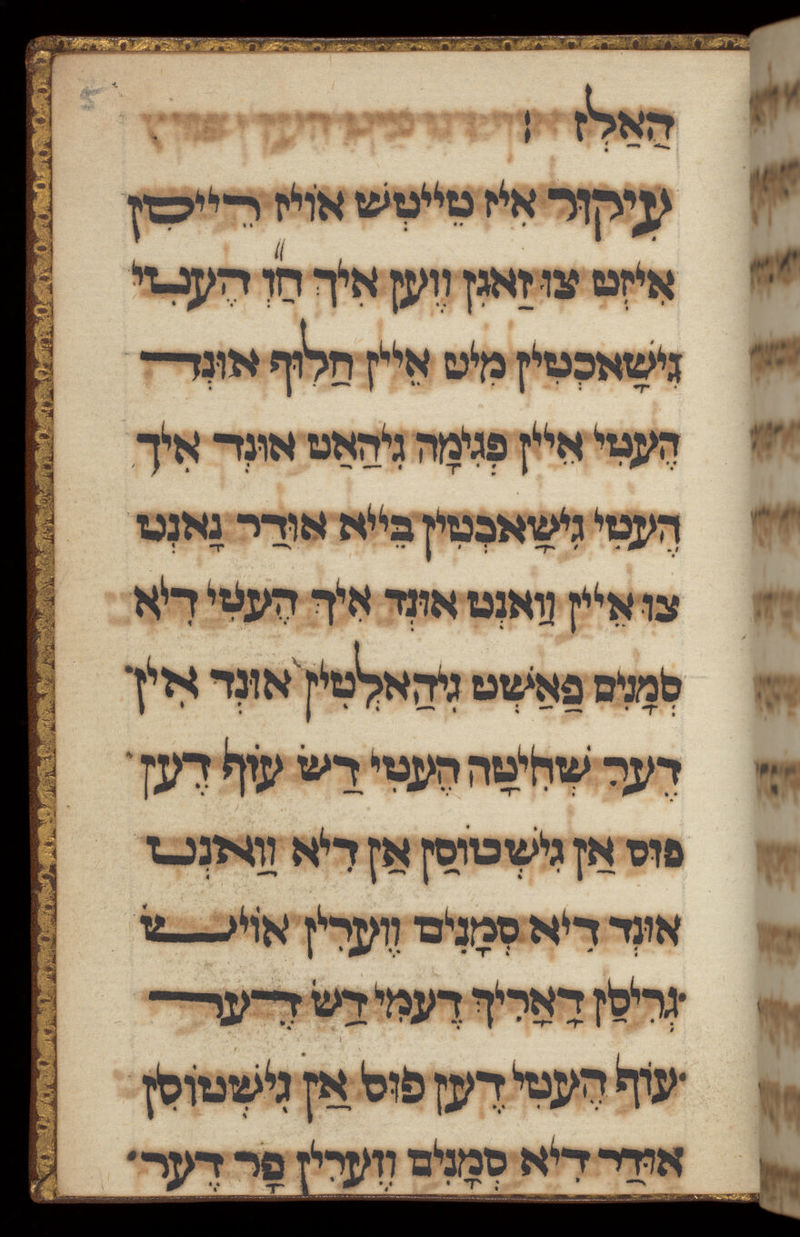 הַאַלְז :
עִיקוּר אִיז טֵייטְשׁ אוֹיז רֵייסִן
אִיזְט צוּ זַאגִן ווֶען אִיךְ חַ״וְ הֶעטִי
גִישָׁאכְטִין מִיט אֵיין חַלוּף אוּנְד
הֶעטִי אֵיין פְּגִימָה גִיהַאַט אוּנְד אִיךְ
הֶעטִי גִישָׁאכְטִין בֵּייא אוּדַר נָאנְט
צוּ אֵיין וַואנְט אוּנְד אִיךְ הֶעטִי דִיא
סְמָנִים פַאַשְׁט גִיהַאלְטִין אוּנְד אִין
דֶער שְׁחִיטָה הֶעטִי דַשׂ עוֹף דֶען
פוּס אַן גִישְׁטוֹסַן אַן דִיא וַואנְט
אוּנְד דִיא סְמָנִים ווֶערִין אוֹישׂ
גְרִיסַן דָאָרִיךְ דֶעמִי דַשׂ דֶער
עוֹף הֶעטִי דֶען פוּס אַן גִישְׁטוֹסִן
אוּדַר דִיא סְמָנִים ווֶערִין פָר דֶער